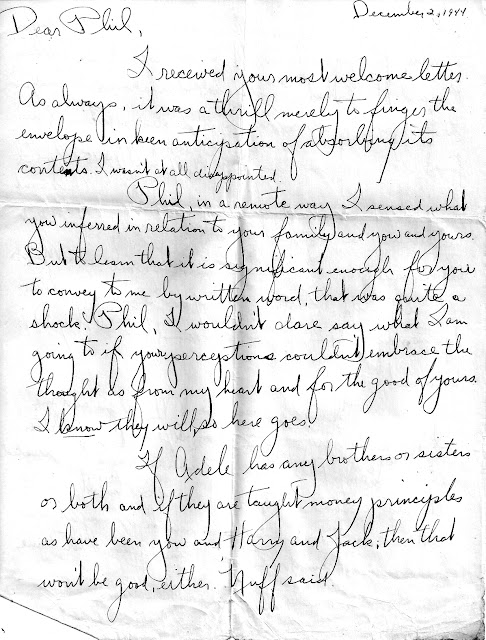 December 2, 1944
Dear Phil,
I received your most welcome letter.
As always, it was a thrill merely to finger the
envelope in keen anticipation of absorbing its
contents. I wasn't at all disappointed.
Phil, in a remote way I sensed what
you inferred in relation to your family and you and yours.
But to learn that it is significant enough for you
to convey to me by written word, that was quite a
shock. Phil, I wouldn't dare say what I am
going to if your perceptions couldn't embrace the
thought as from my heart and for the good of yours.
I know they will, so here goes.
If Adele has any brothers or sisters
or both and if they are taught money principles
as have been you and Harry and Jack, then that
won't be good, either. 'Nuff said.